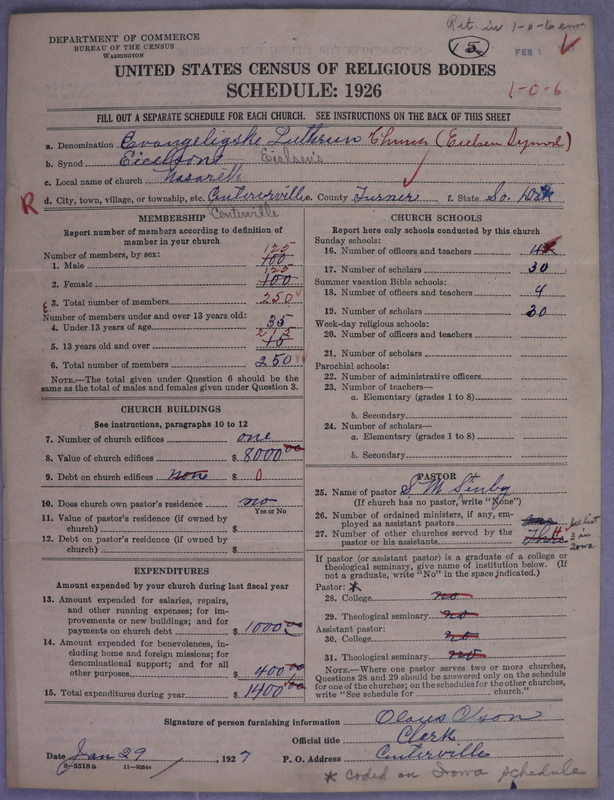 Ret. in 1-0-6 env.
DEPARTMENT OF COMMERCE
BUREAU OF THE CENSUS
WASHINGTON
5
FEB 1
UNITED STATES CENSUS OF RELIGIOUS BODIES
SCHEDULE: 1926
1-0-6
FILL OUT A SEPARATE SCHEDULE FOR EACH CHURCH. SEE INSTRUCTIONS ON THE BACK OF THIS SHEET
a. Denomination Evangeligske Luthrun Church (Eielsen Synod)
b. Synod Eicelsons Eielsen's
c. Local name of church Nasareth
R d. City, town, village, or township, etc. Centerville e. County Turner f. State So. Dak
Centerville
MEMBERSHIP
Report number of members according to definition of
member in your church
Number of members, by sex:
125
1. Male 100
125
2. Female 100
3. Total number of members 250
Number of members under and over 13 years old:
4. Under 13 years of age 35
215
5. 13 years old and over
6. Total number of members 250
NOTE.—The total given under Question 6 should be
same as the total of males and females given under Question 3.
CHURCH BUILDINGS
See instructions, paragraphs 10 to 12
7. Number of church edifices one
8. Value of church edifices $ 8000 00
9. Debt on church edifices none $ 0
10. Does church own pastor's residence no
Yes or No
11. Value of pastor's residence (if owned by
church) $
12. Debt on pastor's residence (if owned by
church) $
EXPENDITURES
Amount expended by your church during last fiscal year
13. Amount expended for salaries, repairs,
and other running expenses; for im-
provements or new buildings; and for
payments on church debt $ 1000
14. Amount expended for benevolences, in-
cluding home and foreign missions; for
denominational support; and for all
other purposes $ 400 00
15. Total expenditures during year $ 1400 00
CHURCH SCHOOLS
Report here only schools conducted by this church
Sunday schools:
16. Number of officers and teachers 4
17. Number of scholars 30
Summer vacation Bible schools:
18. Number of officers and teachers 4
19. Number of scholars 30
Week-day religious schools:
20. Number of officers and teachers
21. Number of scholars
Parochial schools:
22. Number of administrative officers
23. Number of teachers—
a. Elementary (grades 1 to 8)
b. Secondary
24. Number of scholars—
a. Elementary (grades 1 to 8)
b. Secondary
PASTOR
25. Name of pastor S M Stenby
(If church has no pastor, write "None")
26. Number of ordained ministers, if any, em-
ployed as assistant pastors
27. Number of other churches served by the
pastor or his assistants 4
See list
3 in
Iowa
If pastor (or assistant pastor) is a graduate of a college or
theological seminary, give name of institution below. (If
not a graduate, write "No" in the space indicated.)
Pastor: *
28. College no
29. Theological seminary no
Assistant pastor:
30. College no
31. Theological seminary no
NOTE.—Where one pastor serves two or more churches,
Questions 28 and 29 should be answered only on the schedule
for one of the churches; on the schedules for the other churches,
write "See schedule for church."
Signature of person furnishing information Olaus Olson
Official title Clerk
Date Jan 29, 1927 P. O. Address Centerville
8-5518a 11-9054
* Coded on Iowa schedule